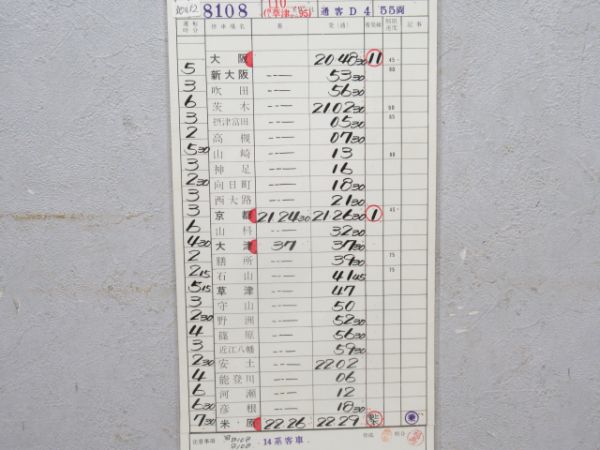 8108 110 通客D4 55両
(草津 95)
運転時分 停車場名 着 発(通) 着発線 制限速度 記事
大阪 20 48 30 11 45
5 新大阪 53 30 60
3 吹田 56 30
6 茨木 21 02 30 60
3 摂津富田 05 30 65
2 高槻 07 30
5 30 山崎 13 60
3 神足 16
2 30 向日町 18 30
3 西大路 21 30
3 京都 21 24 30 21 26 30 1 45
6 山科 32 30
4 30 大津 37 37 30
2 膳所 39 30 75
2 15 石山 41 45 75
5 15 草津 47
3 守山 50
2 30 野洲 52 30
4 篠原 56 30
3 近江八幡 59 30
2 30 安土 22 02
4 能登川 06
6 河瀬 12
6 30 彦根 18 30
7 30 米・原 22 26 22 29 乗
注意事項 14系客車